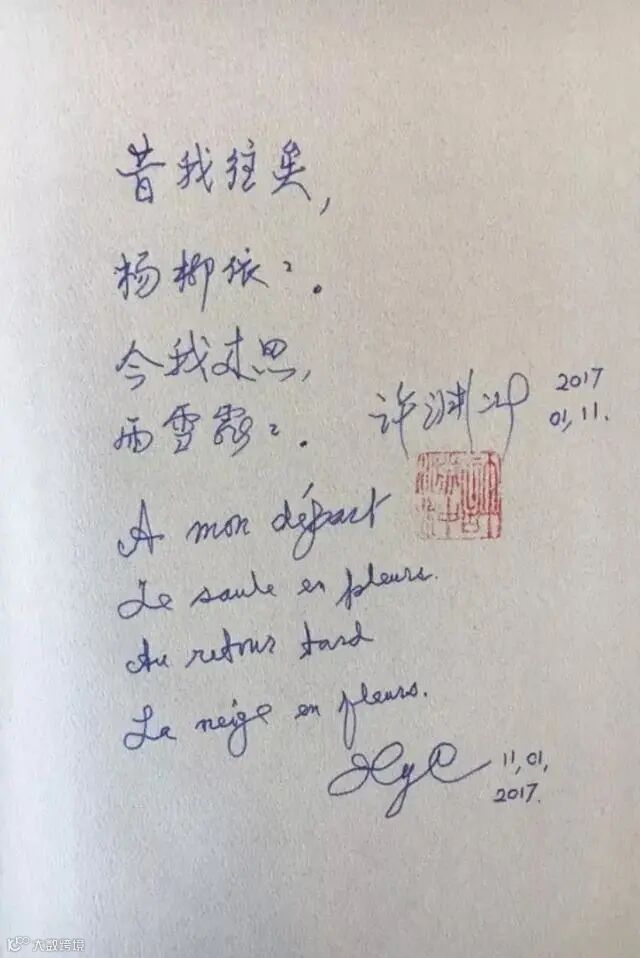 昔我往矣,
杨柳依〻.
今我来思,
雨雪霏〻.
许渊冲
2017
01,11.
A mon départ
Le saule en pleurs.
Au retour tard
La neige en fleurs.
XyC
11,01,
2017.
大数跨境